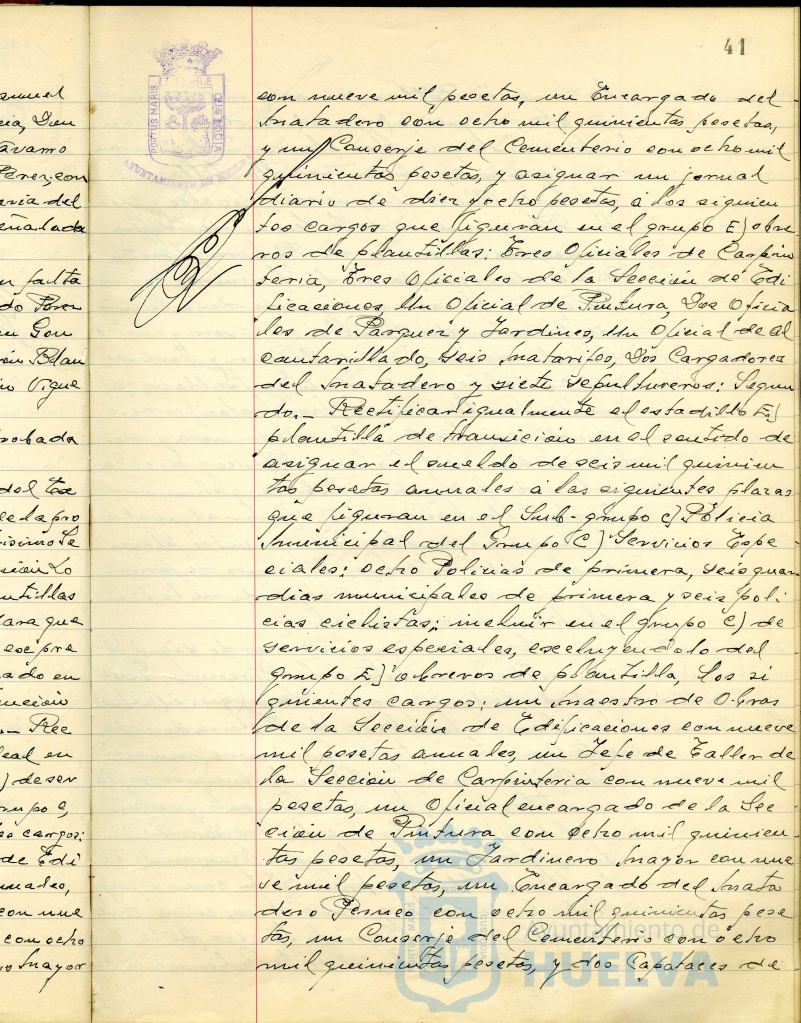 41
PORTUS MARIS
ET TERRÆ
CUSTODIA
AYUNTAMIENTO DE HUELVA
con nueve mil pesetas, un Encargado del
Matadero con ocho mil quinientas pesetas,
y un Conserje del Cementerio con ocho mil
quinientas pesetas, y asignar un jornal
diario de diez y ocho pesetas, á los siguien
tes cargos que figuran en el grupo E) obre
ros de plantillas: Tres Oficiales de Carpin
teria, Tres Oficiales de la Sección de Edi
ficaciones, Un Oficial de Pintura, Dos Oficia
les de Parques y Jardines, Un Oficial de al
cantarillado, seis Matarifes, Dos Cargadores
del Matadero y siete sepultureros: Segun
do.- Rectificar igualmente el estadillo E)
plantilla de transición en el sentido de
asignar el sueldo de seis mil quinien
tas pesetas anuales á las siguientes plazas
que figuran en el Sub-grupo c) Policia
Municipal del Grupo C) Servicios Espe
ciales: ocho Policias de primera, seis guar
dias municipales de primera y seis poli
cias ciclistas; incluir en el grupo C) de
servicios especiales, excluyendolo del
grupo E) obreros de plantilla, los si
guientes cargos: un Maestro de Obras
de la Sección de Edificaciones con nueve
mil pesetas anuales, un Jefe de Taller de
la Sección de Carpinteria con nueve mil
pesetas, un Oficial encargado de la Sec
ción de Pintura con ocho mil quinien
tas pesetas, un Jardinero Mayor con nue
ve mil pesetas, un Encargado del Mata
dero Perneo con ocho mil quinientas pese
tas, un Conserje del Cementerio con ocho
mil quinientas pesetas, y dos Capataces de
Ayuntamiento de
HUELVA